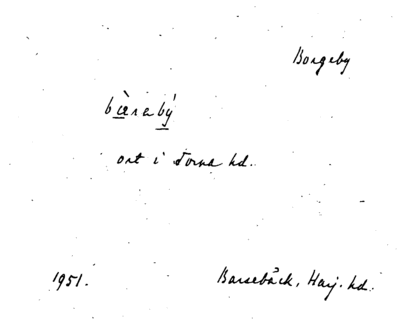 Borgeby
bæ̀rabý
ort i Torna hd.
1951. Barsebäck, Harj. hd.